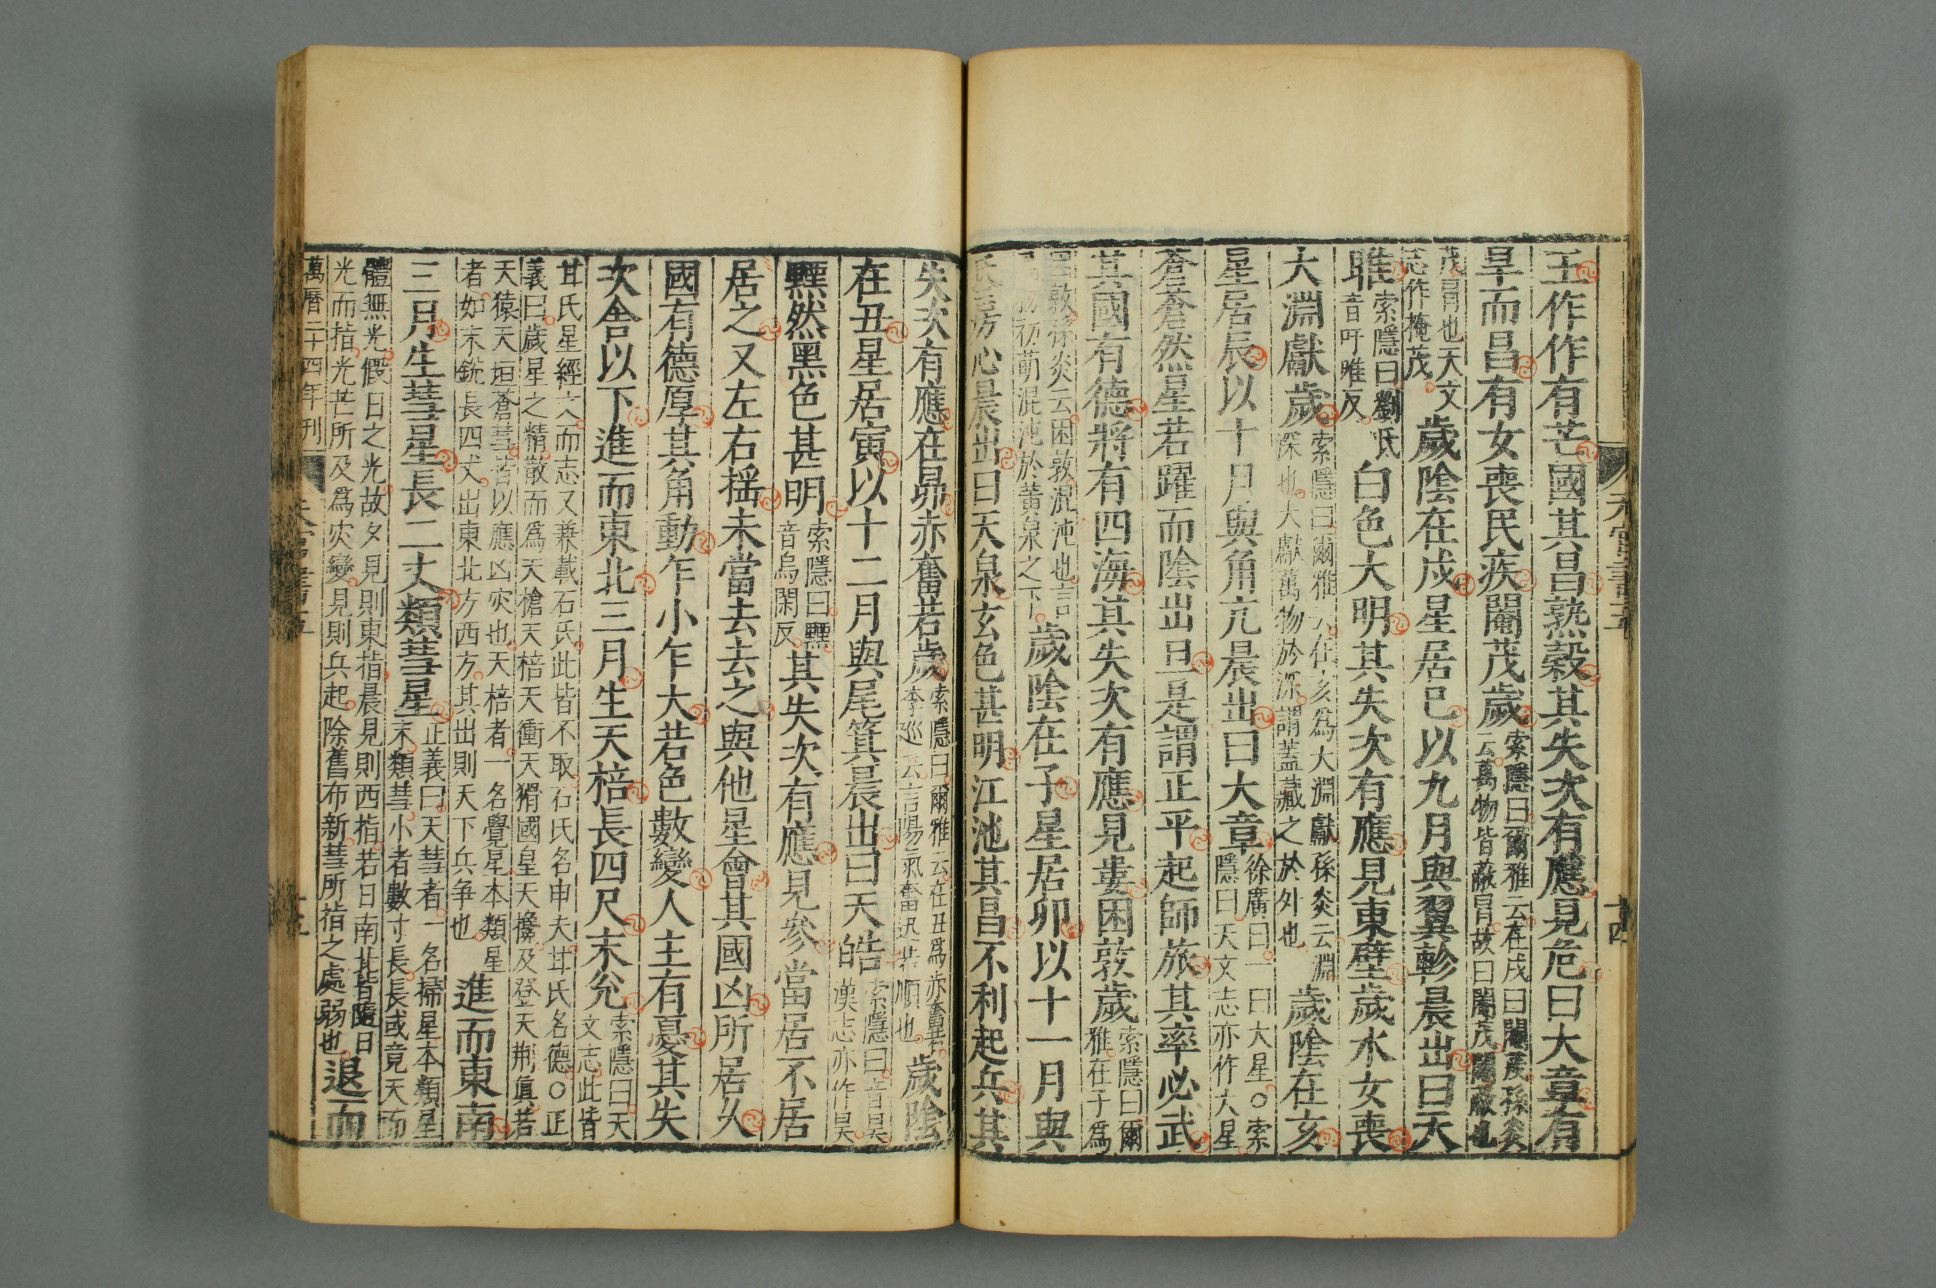 王作作有芒國其昌熟穀其失次有應見危曰大章有
旱而昌有女喪民疾閹茂歲索隱曰爾雅云在戌曰閹茂孫炎云萬物皆蔽冒故曰閹茂閹蔽也
茂冒也天文志作掩茂歲陰在戌星居巳以九月與翼軫晨出曰天
睢索隱曰劉氏音吁唯反白色大明其失次有應見東壁歲水女喪
大淵獻歲索隱曰爾雅云在亥爲大淵獻孫炎云淵深也大獻萬物於深謂蓋藏之於外也歲陰在亥
星居辰以十月與角亢晨出曰大章徐廣曰一曰大星○索隱曰天文志亦作大星
蒼蒼然星若躍而陰出旦是謂正平起師旅其率必武
其國有德將有四海其失次有應見婁困敦歲索隱曰爾雅在子爲
困敦孫炎云困敦混沌也言萬物初萌混沌於黃泉之下歲陰在子星居卯以十一月與
氐房心晨出曰天泉玄色甚明江池其昌不利起兵其
失次有應在昴赤奮若歲索隱曰爾雅云在丑爲赤奮若李巡云言陽氣奮迅若順也歲陰
在丑星居寅以十二月與尾箕晨出曰天皓索隱曰音昊漢志亦作昊
黫然黑色甚明索隱曰黫音烏閑反其失次有應見參當居不居
居之又左右搖未當去去之與他星會其國凶所居久
國有德厚其角動乍小乍大若色數變人主有憂其失
次舍以下進而東北三月生天棓長四尺末兊索隱曰天文志此皆
甘氏星經文而志又兼載石氏此皆不取石氏名申夫甘氏名德○正
義曰歲星之精散而爲天槍天棓天衝天猾國皇天欃及登天荆真若
天猿天垣蒼彗皆以應凶灾也天棓者一名覺星本類星
者如末銳長四丈出東北方西方其出則天下兵爭也進而東南
三月生彗星長二丈類彗星正義曰天彗者一名掃星本類星末類彗小者數寸長長或竟天而
體無光假日之光故夕見則東指晨見則西指若日南北皆隨日
光而指光芒所及爲灾變見則兵起除舊布新彗所指之處弱也退而
萬曆二十四年刊
天官書五
十五
天官書五
十四